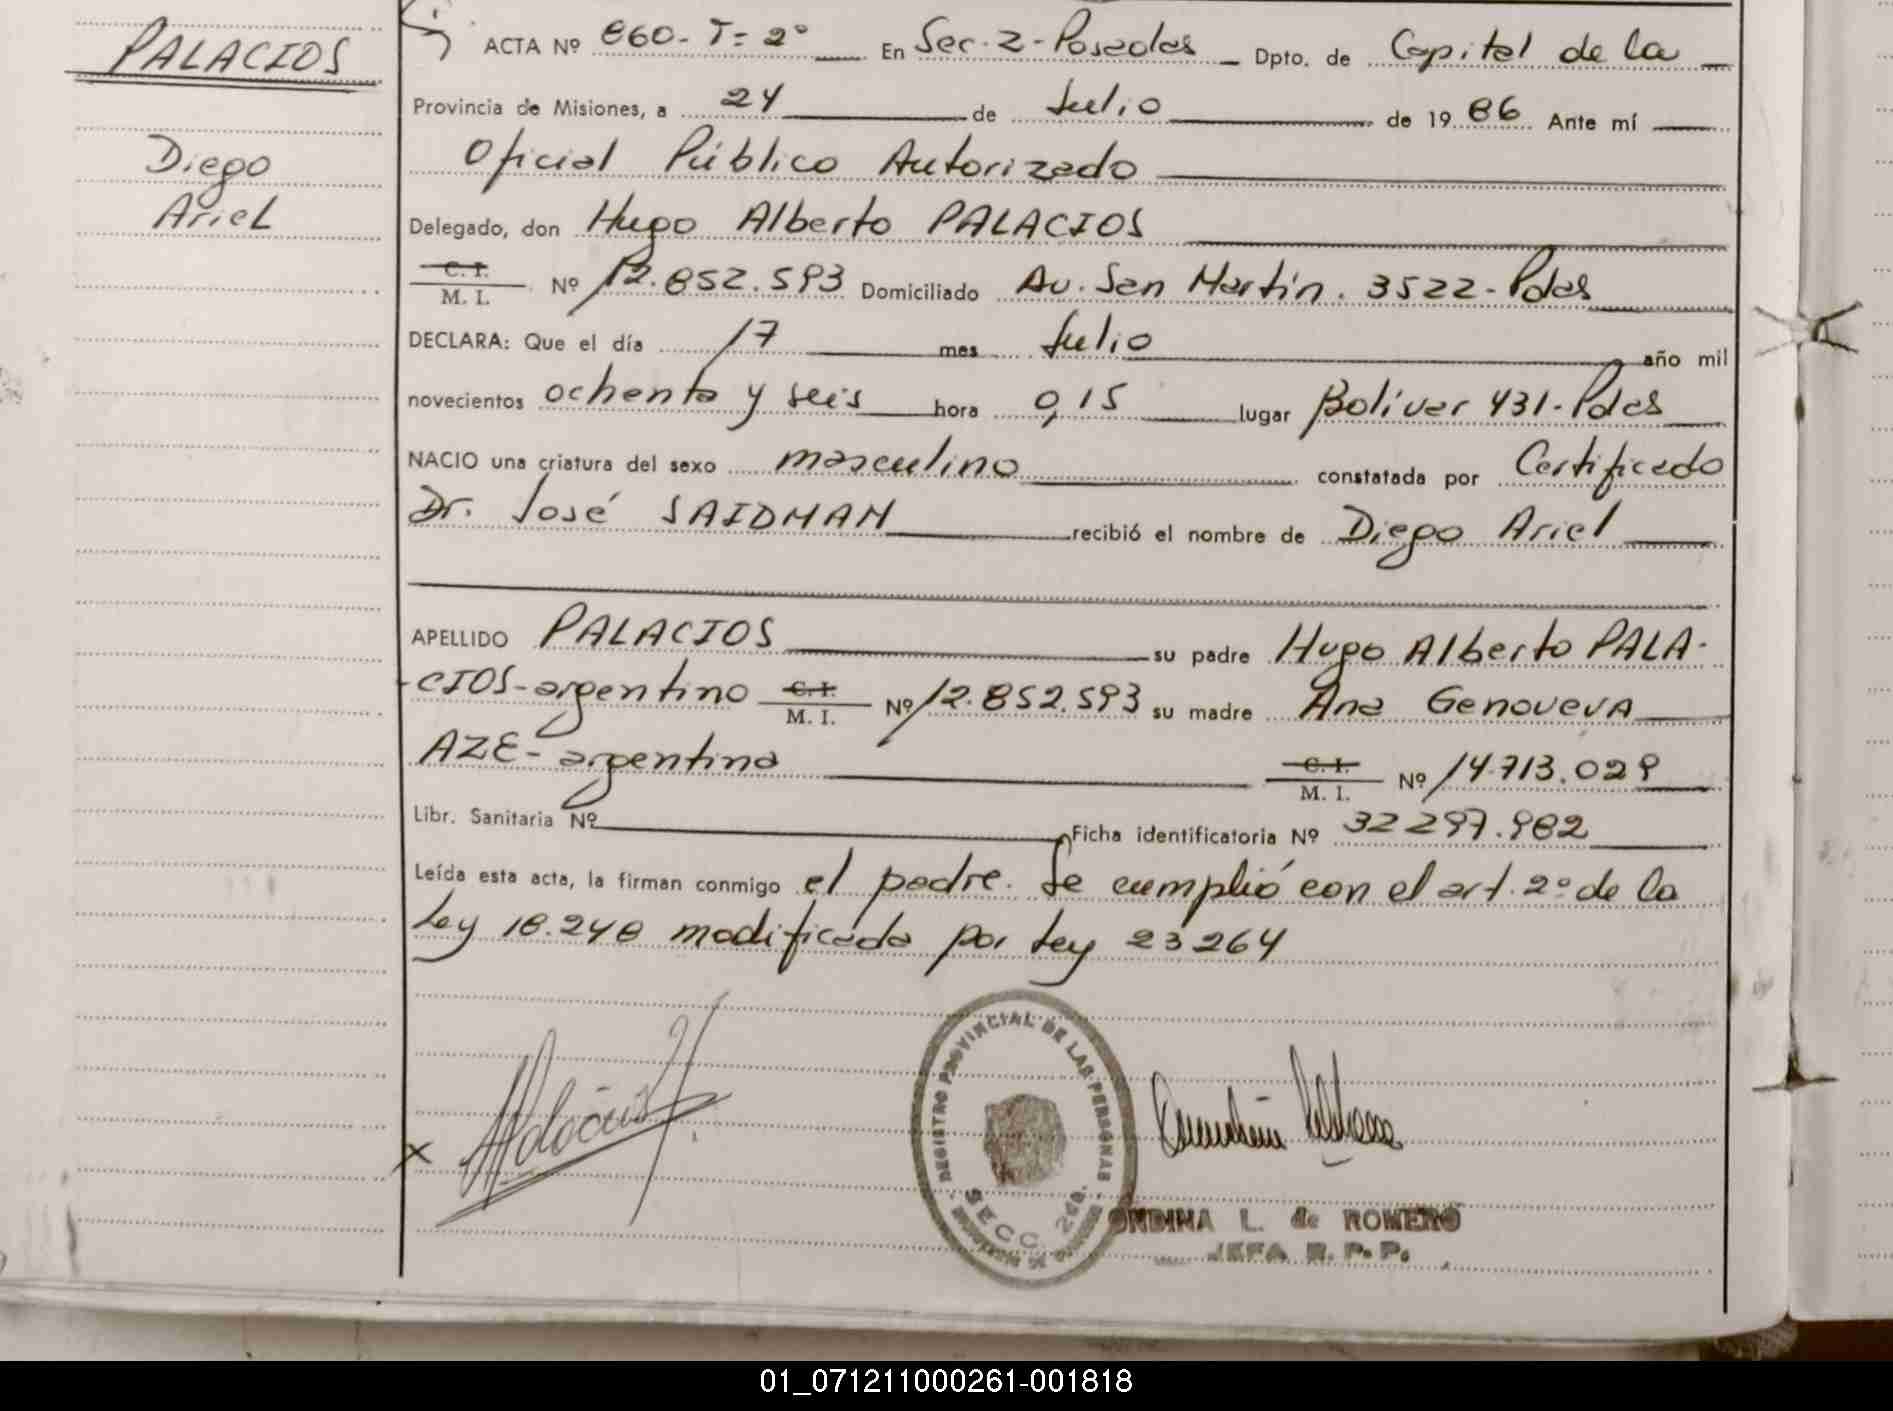 PALACIOS
Diego
Ariel
ACTA Nº 860-T=2º En Sec.2-Posadas Dpto. de Capital de la
Provincia de Misiones, a 24 de Julio de 1986 Ante mí
Oficial Público Autorizado
Delegado, don Hugo Alberto PALACIOS
C. I.
M. I. Nº 12.852.593 Domiciliado Av. San Martín. 3522-Pdas
DECLARA: Que el día 17 mes Julio año mil
novecientos ochenta y seis hora 0,15 lugar Bolívar 431-Pdas
NACIO una criatura del sexo masculino constatada por Certificado
Dr. José SAIDMAN recibió el nombre de Diego Ariel
APELLIDO PALACIOS su padre Hugo Alberto PALA-
-CIOS-argentino C. I. M. I. Nº 12.852.593 su madre Ana Genoveva
AZE-argentina C. I. M. I. Nº 14.713.029
Libr. Sanitaria Nº Ficha identificatoria Nº 32297.982
Leída esta acta, la firman conmigo el padre. Se cumplió con el art. 2º de la
Ley 18.248 modificada por Ley 23264
REGISTRO PROVINCIAL DE LAS PERSONAS
SECC. 2da.
ONDINA L. de ROMERO
JEFA R. P. P.
01_071211000261-001818